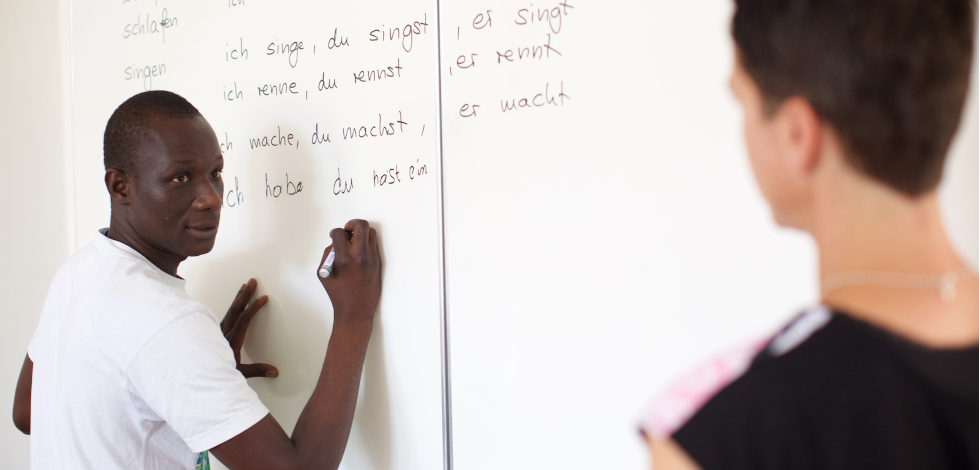 ich
schlafen
singen
ich singe, du singst, er singt
ich renne, du rennst, er rennt
ch mache, du machst, er macht
ch habe du hast ein